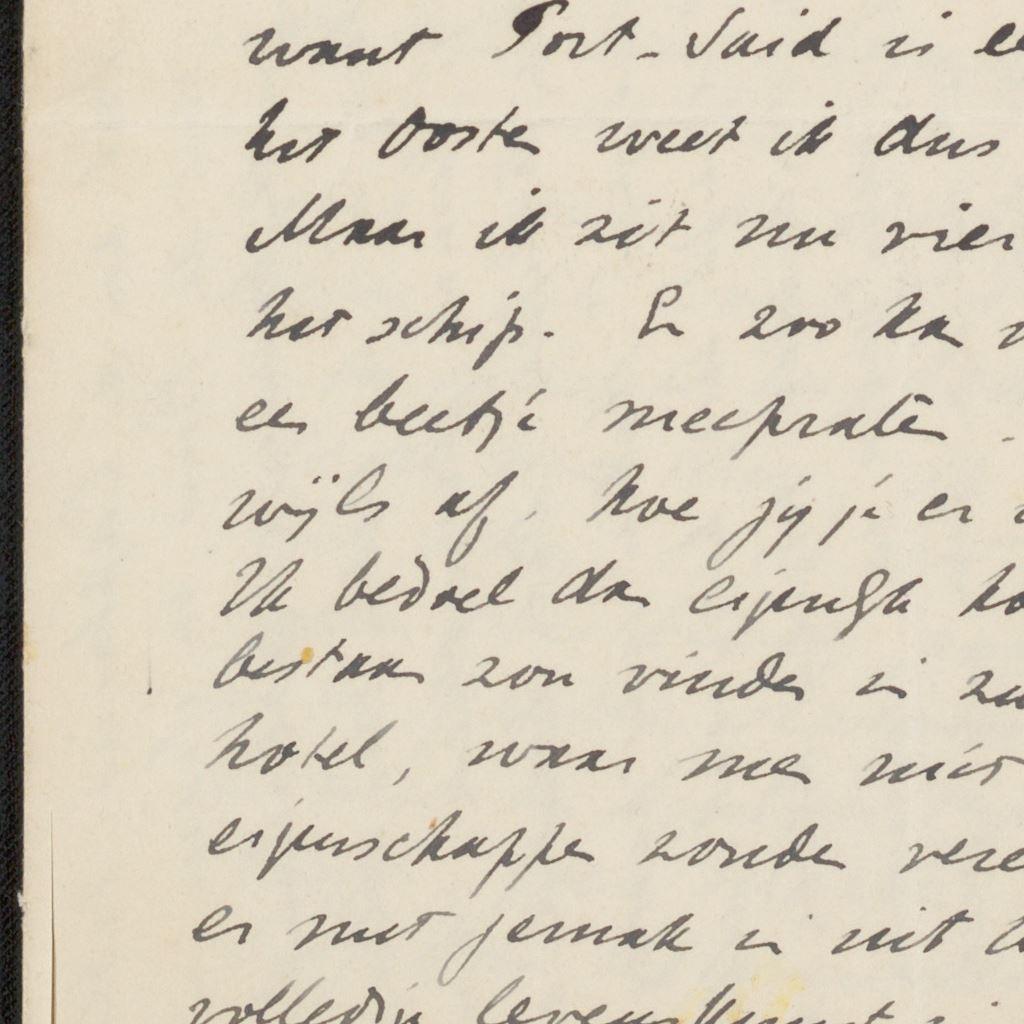 want Port-Said is
het Ooste weet ik dus
Maar ik zit nu vier
het schip. En zoo kan
een beetje meepraten.
wijls af, hoe jij je er
Ik bedoel dan eigenlijk
bestaan zou vinden in
hotel, waar men niet
eigenschappen zonder
er met gemak in uit
volledig levenskunst